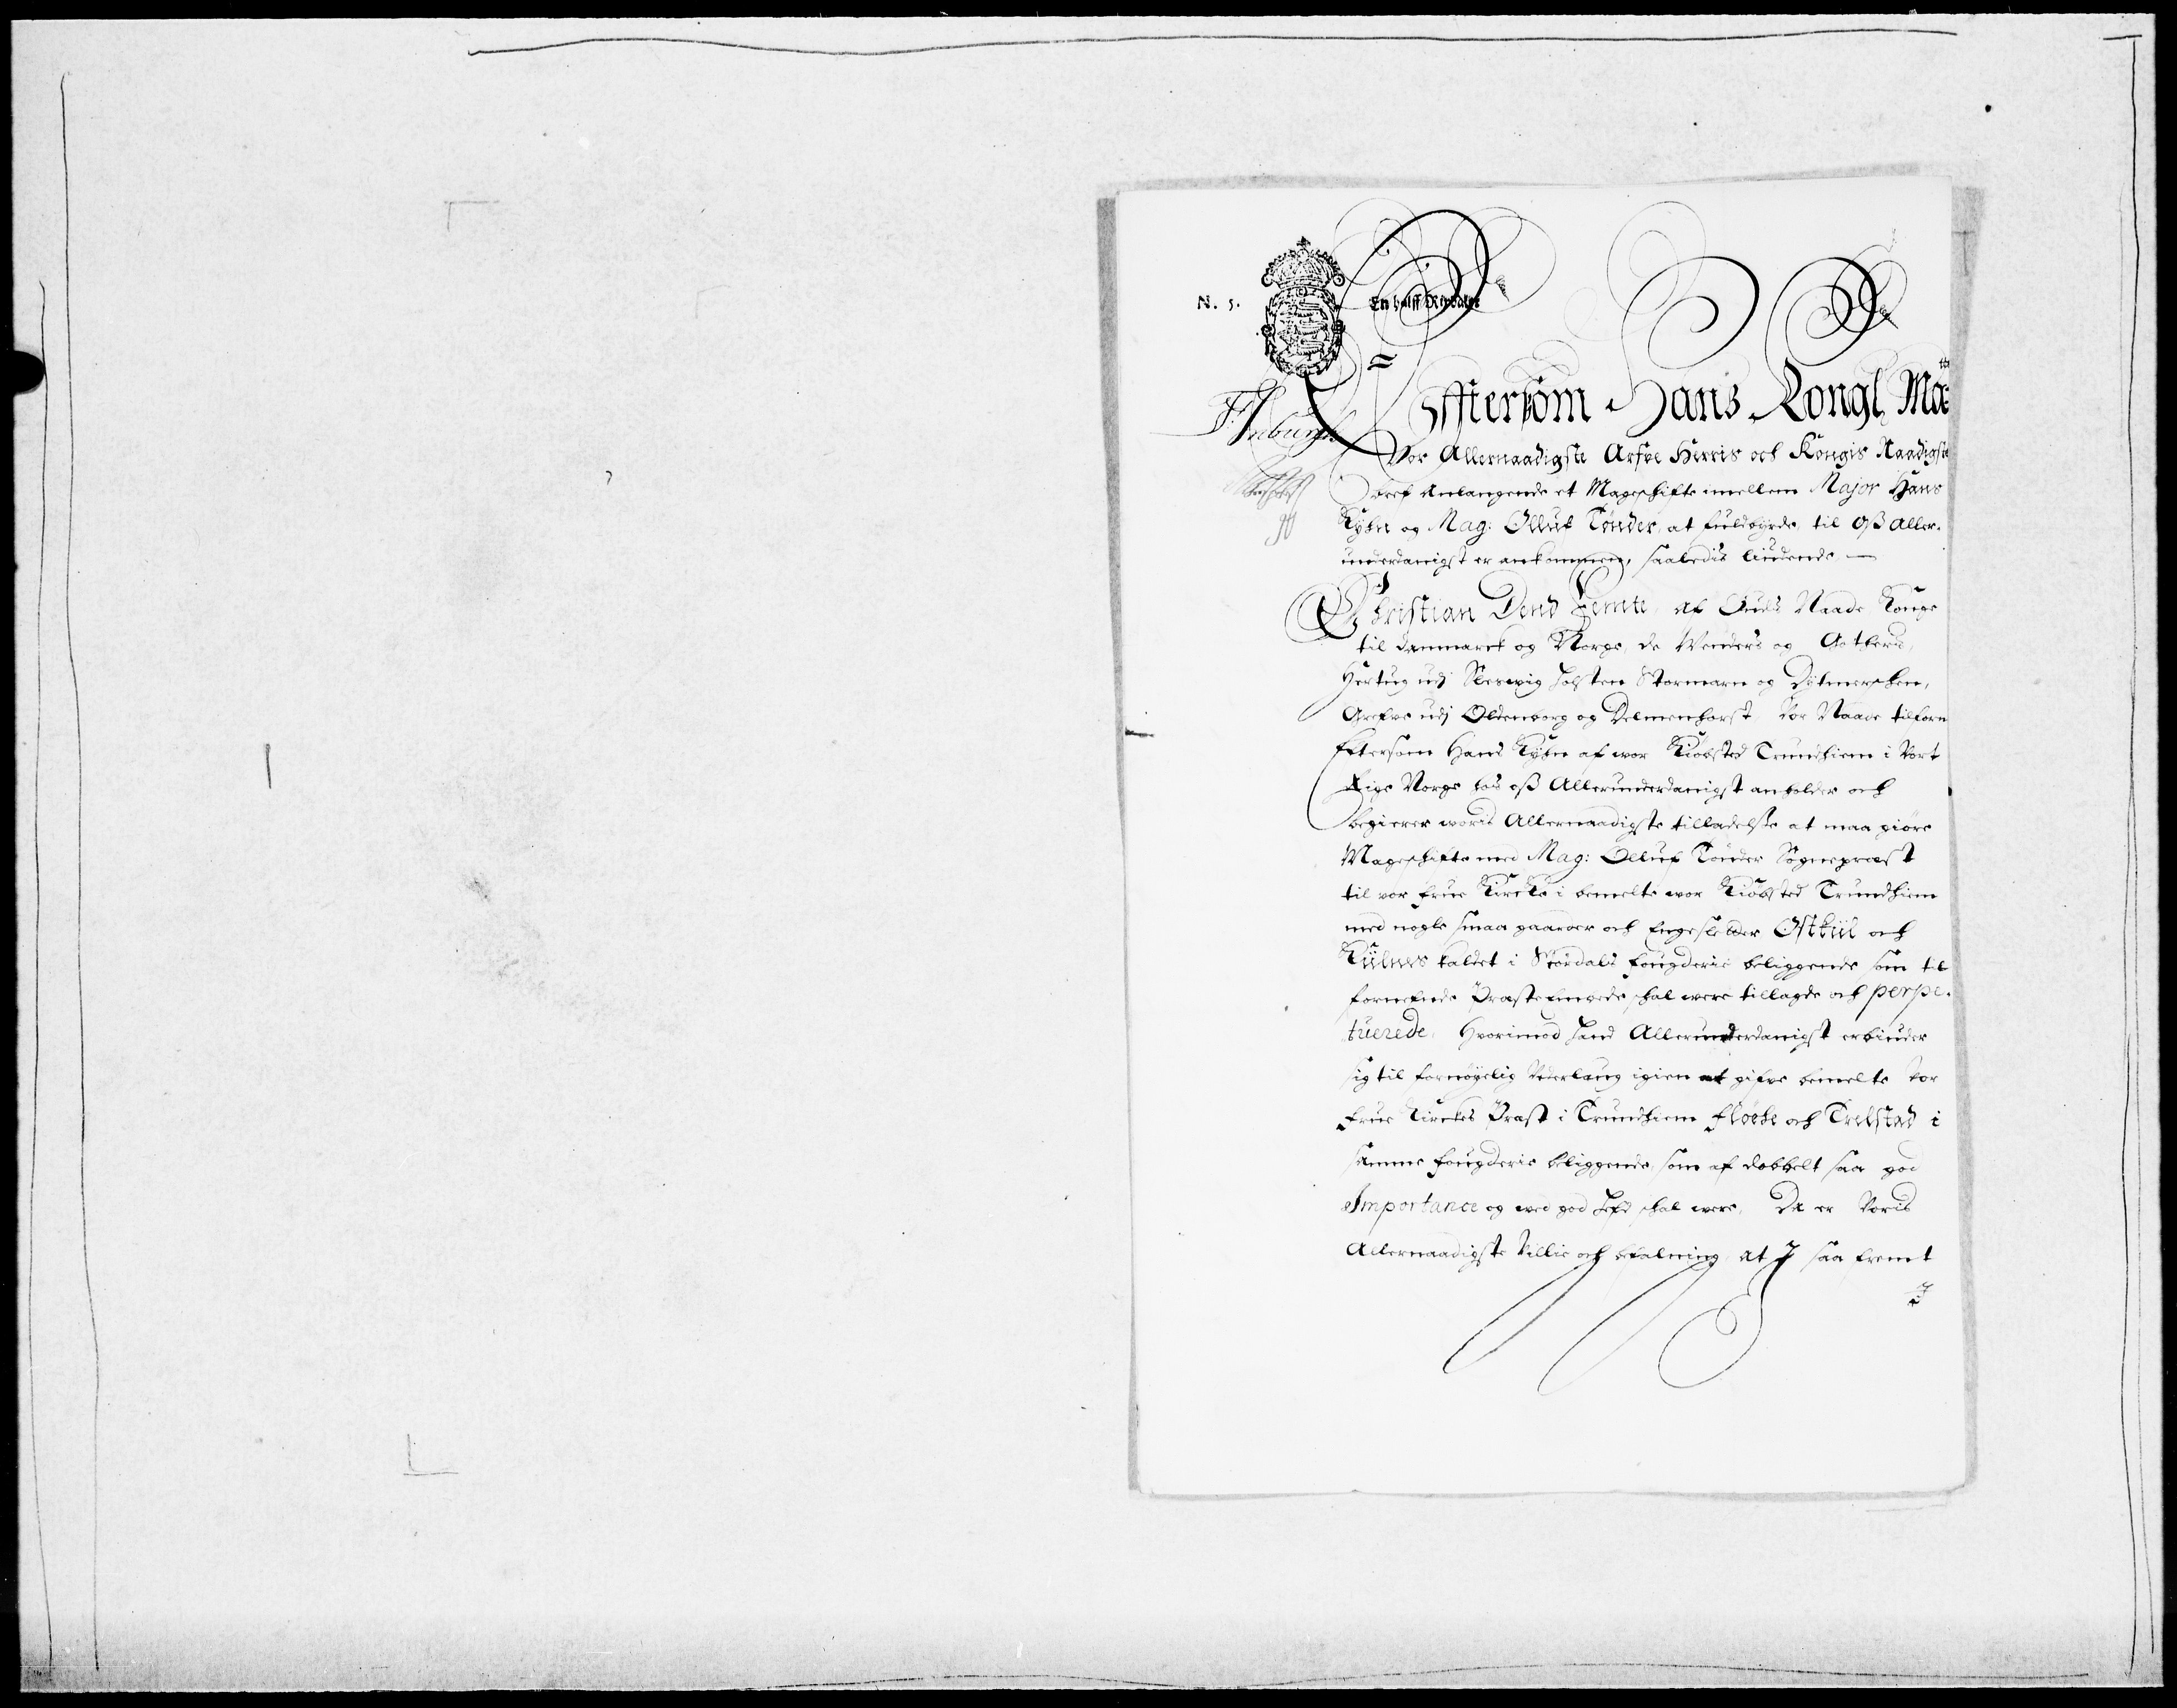 N. 5.
En halff Rixdaler
Efftersom Hans Kongl Maᵗᵗˢ
Vor Allernaadigste Arfve Herris och Kongis Naadigste
breef Anlangende et Mageschifte imellem Major Hans
Kyhn og Mag: Olluf Tønder, at fuldbyrde, til oß Aller-
underdanigst er ankommen, saaledis liudende.
Christian Dend Femte, af Guds Naade Konge
til Danmarck og Norge, de Wenders og Gothers,
Hertug udj Slesvig Holsten Stormarn og Dytmerschen,
Grefve udj Oldenborg og Delmenhorst Vor Naade tilforn
Eftersom Hans Kyhn af wor Kiøbsted Trundhiem i Vort
Rige Norge hos oß Allerunderdanigst anholder och
begierer woris Allernaadigste tilladelsse at maa giøre
Mageschifte med Mag: Olluf Tønder Sognepræst
til vor frue Kircke i bemelte wor Kiøbsted Trundhiem
med nogle smaa gaarder och Engesletter Ostkiil och
Kiilnes kaldet i Stördals fougderie beliggende som til
fornefnde Præsteembede schal were tillagde och perpe-
tuerede, Hvorimod hand Allerunderdanigst erbiuder
sig til fornøyelig Vederlaug igien at gifve bemelte Vor
frue Kirckes Præst i Trundhiem fløche och Trelstad i
samme fougderie beliggende, som af dobbelt saa god
Importance og wed god hefd schal were, Da er Voris
Allernaadigste Villie och befalning, at J saa fremt
J